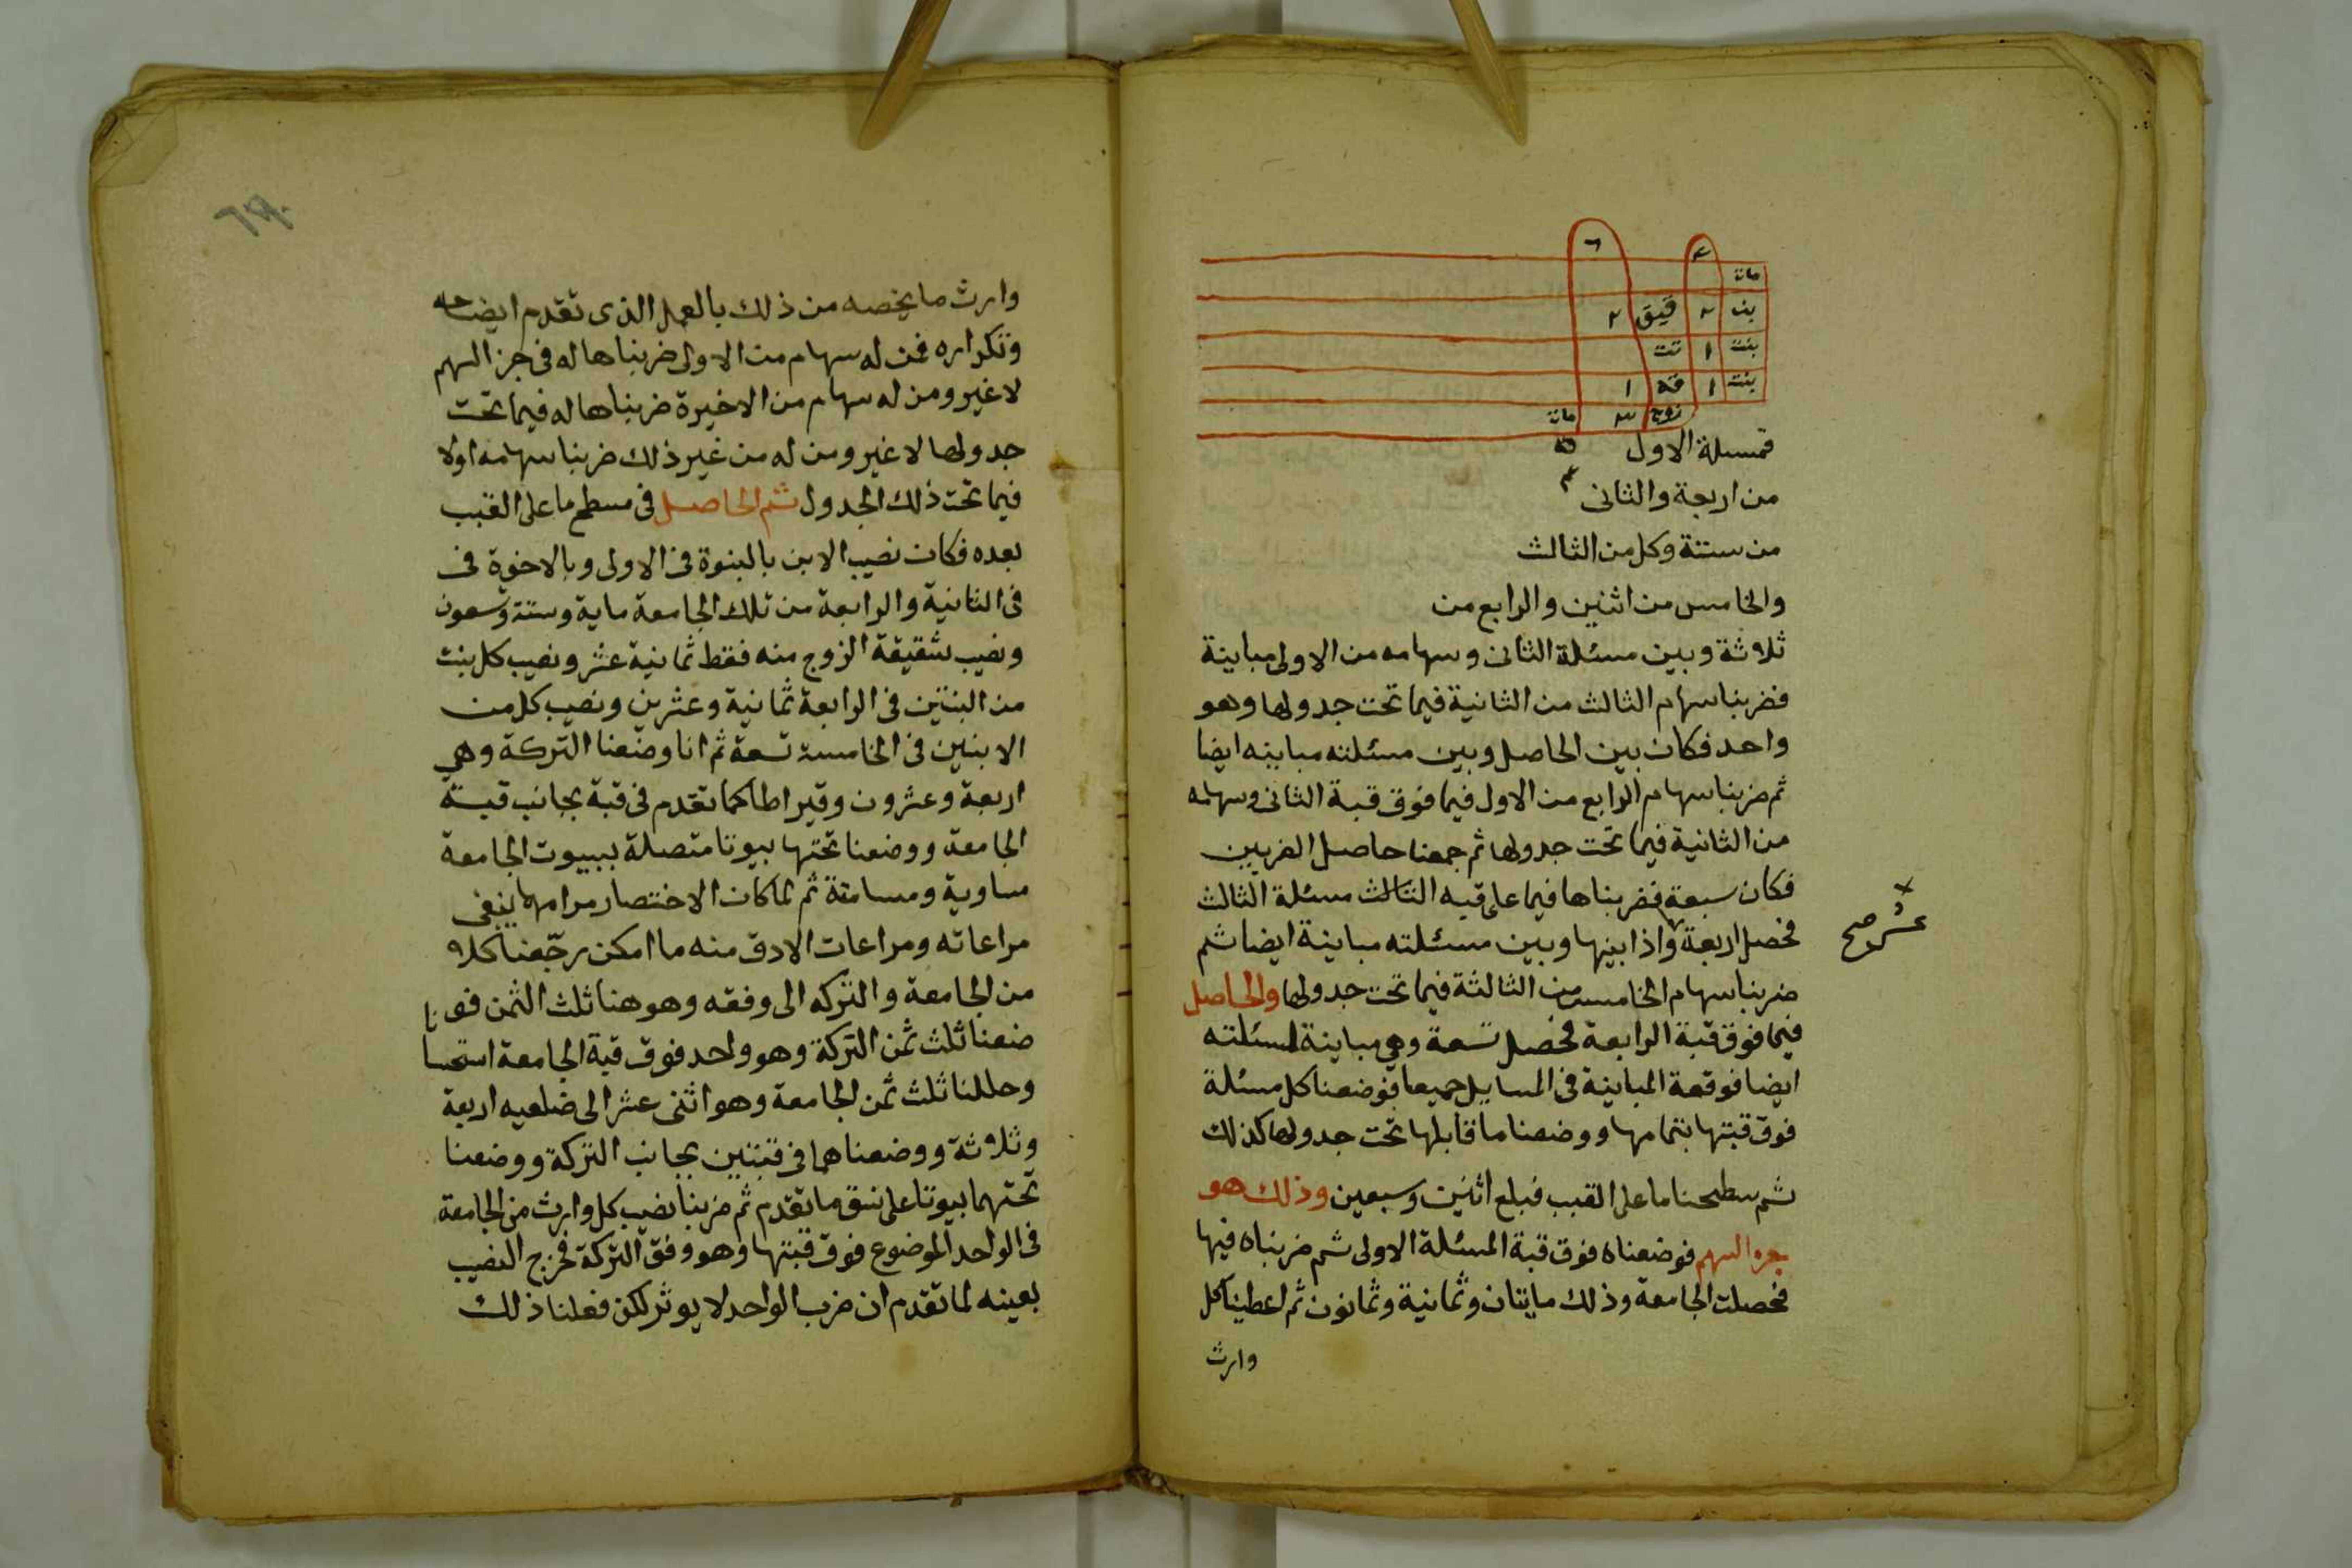 ٤ ٦
مات
بنت ٢ قيق ٢
بنت ١ تت
بنت ١ قة ١
زوج ٣ مات
فمسئلة الاول
من اربعة والثانى
من ستتة وكل من الثالث
والخامس من اثنين والرابع من
ثلاثة وبين مسئلة الثانى وسهامه من الاولى مباينة
فضربنا سهام الثالث من الثانية فيما تحت جدولها وهو
واحد فكان بين الحاصل وبين مسئلته مباينه ايضا
ثم ضربنا سهام الرابع من الاول فيما فوق قبة الثانى وسهامه
من الثانية فيما تحت جدولها ثم جمعنا حاصل الضربين
فكان سبعة فضربناها فيما على قبه الثالث مسئلة الثالث
فحصل اربعة واذا بينها وبين مسئلته مباينة ايضا ثم
عشر صح
ضربنا سهام الخامس من الثالثة فيما تحت جدولها والحاصل
فيما فوق قبة الرابعة فحصل تسعة وهى مباينة لمسئلته
ايضا فوقعة المباينة فى المسايل جميعا فوضعنا كل مسئلة
فوق قبتها بتمامها ووضعنا ما قابلها تحت جدولها كذلك
ثم سطحنا ما على القبب فبلغ اثنين وسبعين وذلك هو
جزء السهم فوضعناه فوق قبة المسئلة الاولى ثم ضربناه فيها
فحصلت الجامعة وذلك مايتان وثمانية وثمانون ثم اعطينا كل
وارث
وارث ما يخصه من ذلك بالعمل الذى تقدم ايضاحه
وتكراره فمن له سهام من الاولى ضربناها له فى جز السهم
لا غير ومن له سهام من الاخيرة ضربناها له فيما تحت
جدولها لا غير ومن له من غير ذلك ضربنا سهامه اولا
فيما تحت ذلك الجدول ثم الحاصل فى مسطح ما على القبب
بعده فكان نصيب الابن بالبنوة فى الاولى وبالاخوة فى
فى الثانية والرابعة من تلك الجامعة ماية وستة وتسعون
ونصيب شقيقة الزوج منه فقط ثمانية عشر ونصيب كل بنت
من البنتين فى الرابعة ثمانية وعشرين ونصيب كل من
الابنين فى الخامسة تسعة ثم انا وضعنا التركة وهى
اربعة وعشرون وقيراطا كما تقدم فى قبة بجانب قبة
الجامعة ووضعنا تحتها بيوتا متصلة ببيوت الجامعة
مساوية ومسامتة ثم لما كان الاختصار مرامها ينبغى
مراعاته ومراعات الادق منه ما امكن رجّعنا كلا
من الجامعة والتركه الى وفقه وهو هنا ثلث الثمن فو
ضعنا ثلث ثمن التركة وهو واحد فوق قبة الجامعة استحسانا
وحللنا ثلث ثمن الجامعة وهو اثنى عشر الى ضلعيه اربعة
وثلاثة ووضعناهما فى قبتين بجانب التركة ووضعنا
تحتهما بيوتا على نسق ما تقدم ثم ضربنا نصيب كل وارث من الجامعة
فى الواحد الموضوع فوق قبتها وهو وفق التركة فخرج النصيب
بعينه لما تقدم ان ضرب الواحد لا يوثر لكن فعلنا ذلك